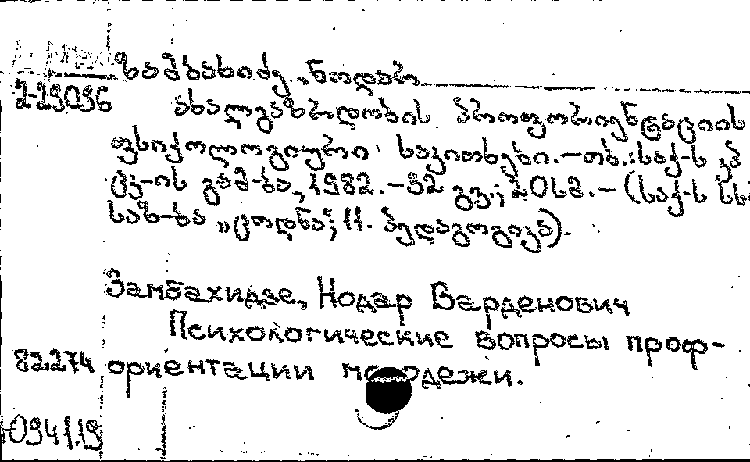 ზამბახიძე, ნოდარ
2-29096 ახალგაზრდობის პროფორიენტაციის
ფსიქოლოგიური საკითხები.—თბ.:საქ-ს კპ
ცკ-ის გამ-ბა, 1982.—32 გვ.; 20სმ.—(საქ-ს სსრ
საზ-ბა „ცოდნა“; 11. პედაგოგიკა).
Замбахидзе, Нодар Варденович
Психологические вопросы проф-
82.274 ориентации молодежи.
0941.19